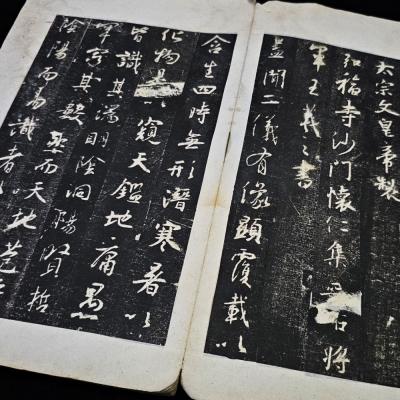 太宗文皇帝製
弘福寺沙門懷仁集右將
軍王羲之書
蓋聞二儀有像顯覆載以
含生四時無形潛寒暑以
化物是以窺天鑑地庸愚
皆識其端明陰洞陽賢哲
罕窮其數然而天地苞乎
陰陽而易識者以